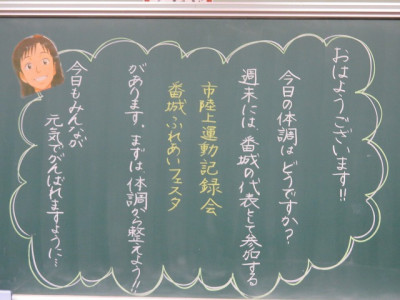 おはようございます!!
今日の体調はどうですか?
週末には、番城の代表として参加する
市陸上運動記録会
番城ふれあいフェスタ
があります。まずは、体調から整えよう!!
今日もみんなが
元気でがんばれますように…